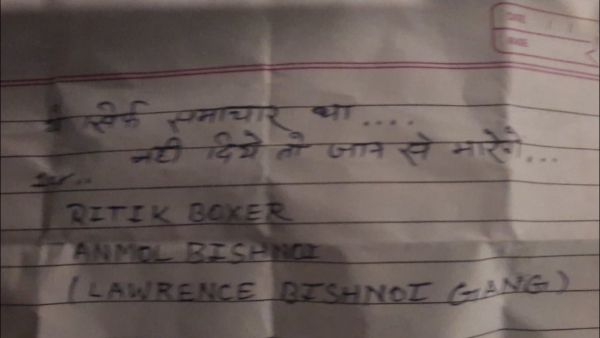 DATE
PAGE
ये सिर्फ समाचार था ....
नही दिये तो जान से मारेंगे...
RITIK BOXER
ANMOL BISHNOI
(LAWRENCE BISHNOI GANG)